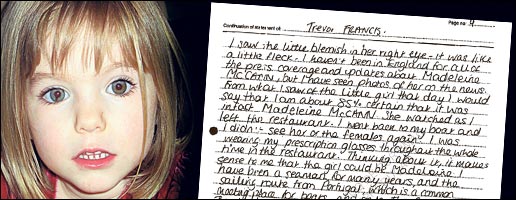 Page no 4
Continuation of statement of: TREVOR FRANCIS.
I saw the little blemish in her right eye - it was like
a little fleck. I haven't been in England for all of
the press coverage and updates about Madeleine
McCANN, but I have seen photos of her on the news.
From what I saw of the little girl that day I would
say that I am about 85% certain that it was
infact Madeleine McCANN. She watched as I
left the restaurant. I went back to my boat and
I didn't see her or the females again. I was
wearing my prescription glasses throughout the whole
time in the restaurant. Thinking about it, it makes
sense to me that the girl could be Madeleine. I
have been a seaman for many years, and the
sailing route from Portugal, which is a common
meeting place for boats, and